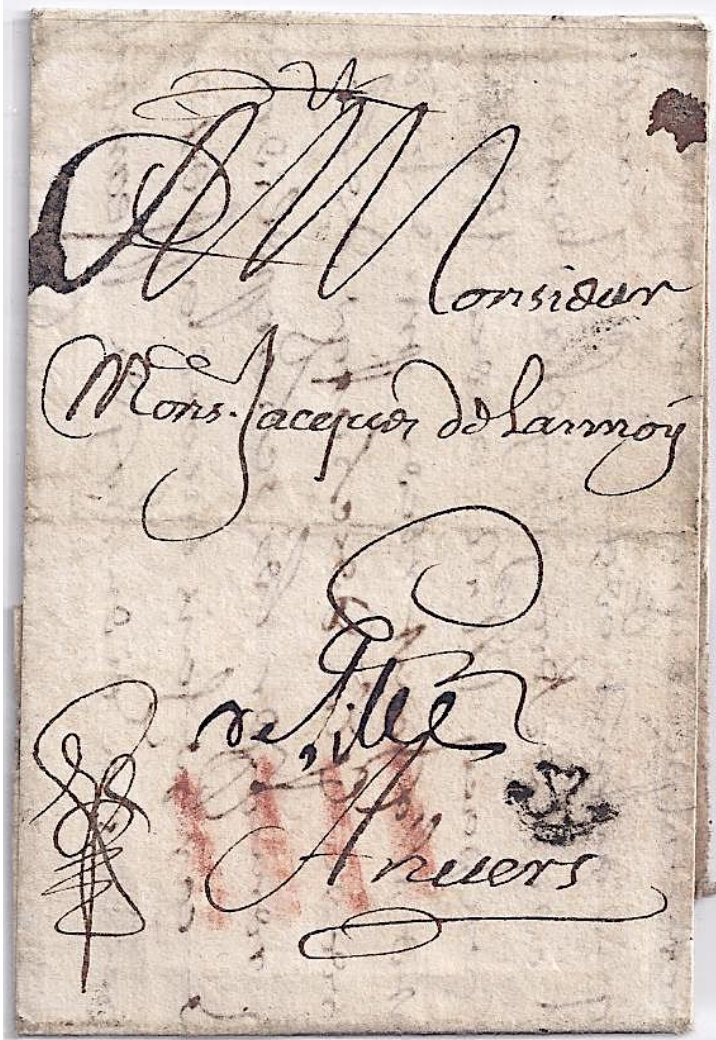 A Monsieur
Mons. Jacques de Lannoÿ
de Lille
Anvers